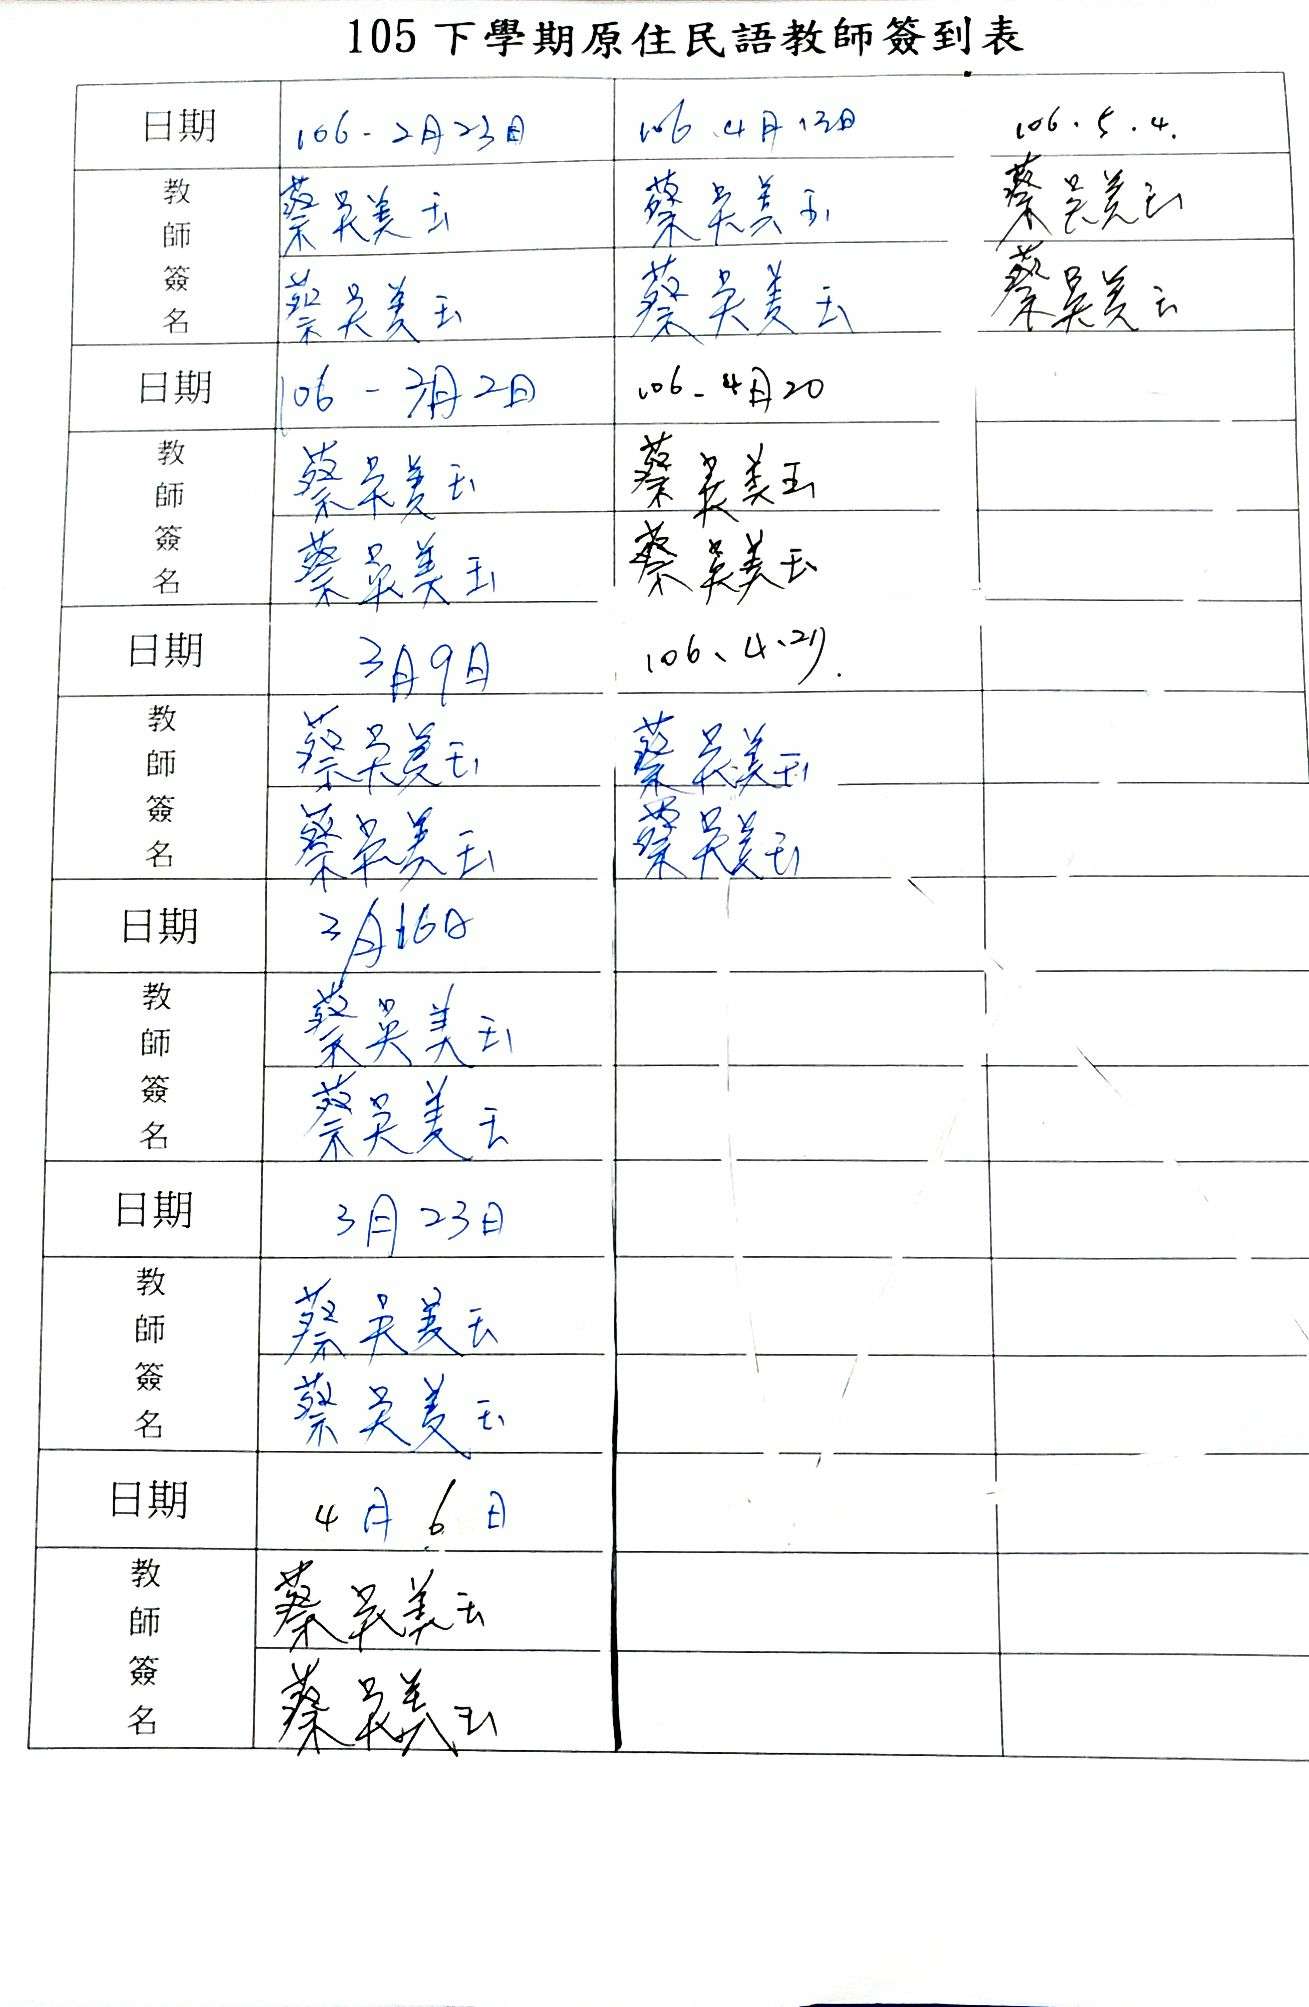 105下學期原住民語教師簽到表
日期 106-2月23日 106.4月13日 106.5.4.
教師簽名 蔡吳美玉 蔡吳美玉 蔡吳美玉
蔡吳美玉 蔡吳美玉 蔡吳美玉
日期 106-3月2日 106-4月20
教師簽名 蔡吳美玉 蔡吳美玉
蔡吳美玉 蔡吳美玉
日期 3月9日 106、4、27.
教師簽名 蔡吳美玉 蔡吳美玉
蔡吳美玉 蔡吳美玉
日期 3月16日
教師簽名 蔡吳美玉
蔡吳美玉
日期 3月23日
教師簽名 蔡吳美玉
蔡吳美玉
日期 4月6日
教師簽名 蔡吳美玉
蔡吳美玉